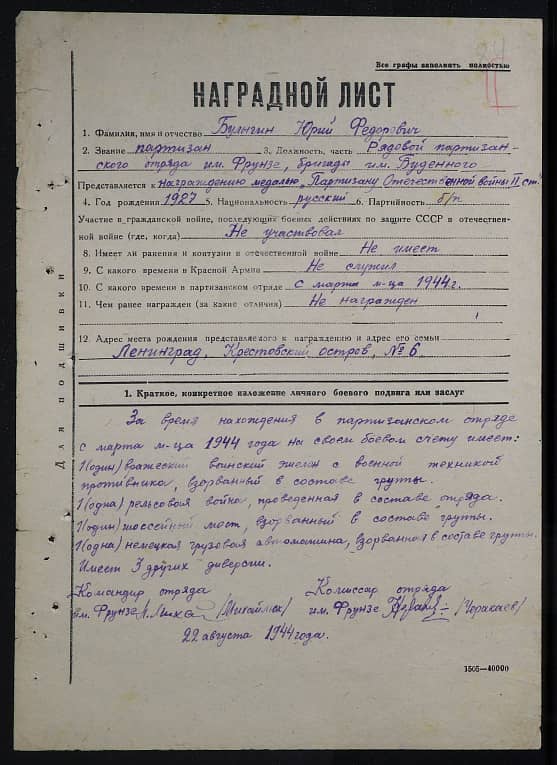 Все графы заполнять полностью
НАГРАДНОЙ ЛИСТ
1. Фамилия, имя и отчество Булыгин Юрий Федорович
2. Звание партизан 3. Должность, часть Рядовой партизан-
ского отряда им. Фрунзе, бригады им. Буденного
Представляется к награждению медалью „Партизану Отечественной войны II ст.
4. Год рождения 1927 5. Национальность русский 6. Партийность б/п
Участие в гражданской войне, последующих боевых действиях по защите СССР и отечествен-
ной войне (где, когда) Не участвовал
8. Имеет ли ранения и контузии в отечественной войне Не имеет
9. С какого времени в Красной Армии Не служил
10. С какого времени в партизанском отряде с марта м-ца 1944 г.
11. Чем ранее награжден (за какие отличия) Не награжден
12. Адрес места рождения представляемого к награждению и адрес его семьи
Ленинград, Крестовский остров, № 6
Для подшивки
1. Краткое, конкретное изложение личного боевого подвига или заслуг
За время нахождения в партизанском отряде
с марта м-ца 1944 года на своем боевом счету имеет:
1(один) вражеский воинский эшелон с военной техникой
противника, взорванный в составе группы.
1(одна) рельсовая война, проведенная в составе отряда.
1(один) шоссейный мост, взорванный в составе группы.
1(одна) немецкая грузовая автомашина, взорванная в составе группы.
Имеет 3 других диверсии.
Командир отряда Комиссар отряда
им. Фрунзе им. Фрунзе
22 августа 1944 года.
1505—40000